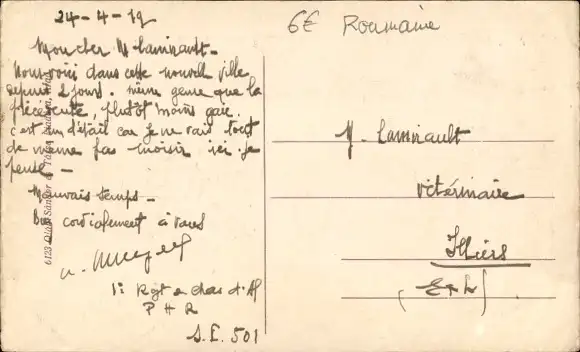 24-4-19
6€ Roumanie
Mon cher M. Lamirault -
Nous voici dans cette nouvelle ville
depuis 2 jours. même genre que la
précédente, plutôt moins gaie.
c'est un détail car je ne vais tout
de même pas moisir ici je
pense -
Mauvais temps -
Bien cordialement à vous
1er Rgt de Chars d'Af
P H R
S.P. 501
M. Lamirault
vétérinaire
Illiers
(E & L)
6123